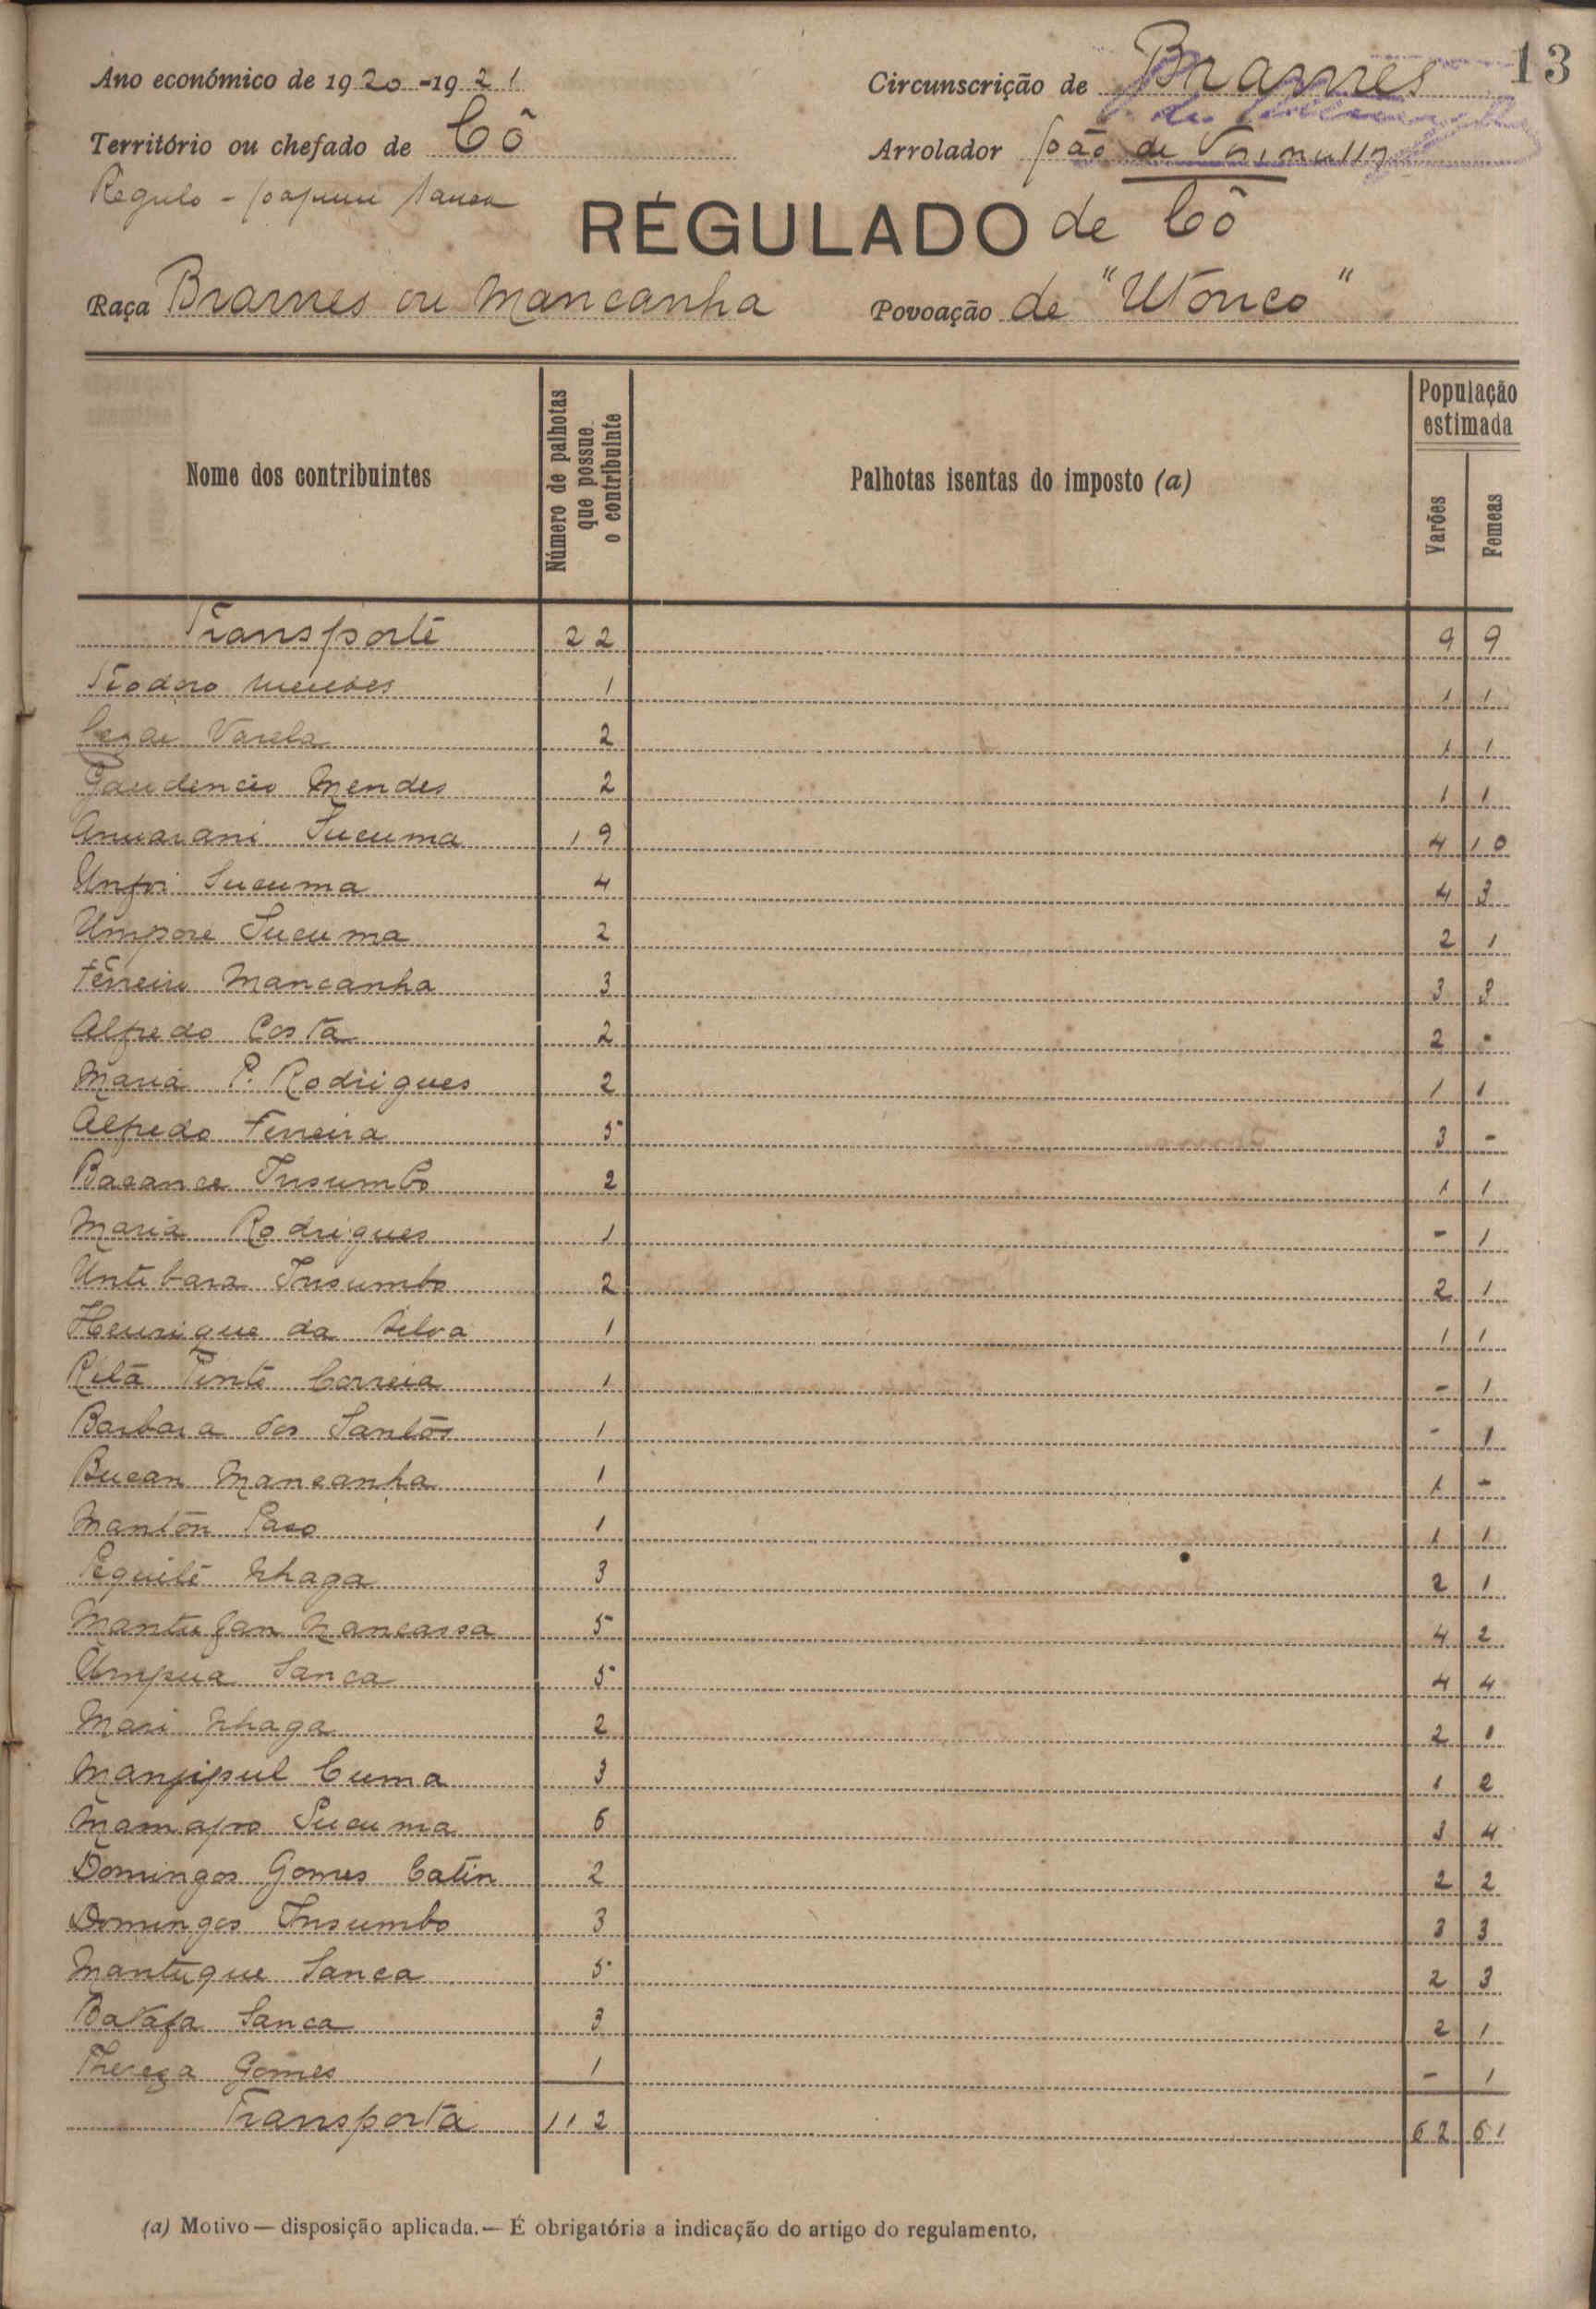 13
Ano económico de 1920-1921 Circunscrição de Brames
Território ou chefado de Cô Arrolador João de
Regulo -
RÉGULADO de Cô
Raça Brames ou Mancanha Povoação de "Utonco"
Nome dos contribuintes Número de palhotas que possue o contribuinte Palhotas isentas do imposto (a) População estimada Varões Femeas
Transporte 22 9 9
Teodoro Mendes 1 1 1
Varela 2 1 1
Gaudencio Mendes 2 1 1
Anuarani Sucuma 19 4 10
Unfoi Sucuma 4 4 3
Umpore Sucuma 2 2 1
Ferreiro Mancanha 3 3 3
Alfredo Costa 2 2 -
Maria P. Rodrigues 2 1 1
Alfredo Ferreira 5 3 -
Bacance Insumbo 2 1 1
Maria Rodrigues 1 - 1
Untibara Insumbo 2 2 1
Henrique da Silva 1 1 1
Rita Pinto Correia 1 - 1
Barbara dos Santos 1 - 1
Bucan Mancanha 1 1 -
Manton Caco 1 1 1
Pequite Nhaga 3 2 1
Mantufan Nancassa 5 4 2
Umpua Sanca 5 4 4
Mari Nhaga 2 2 1
Manjipul Cuma 3 1 2
Mamapro Sucuma 6 3 4
Domingos Gomes Catin 2 2 2
Domingos Insumbo 3 3 3
Mantuque Sanca 5 2 3
Batafa Sanca 3 2 1
Thereza Gomes 1 - 1
Transporta 112 62 61
(a) Motivo — disposição aplicada. — É obrigatória a indicação do artigo do regulamento.